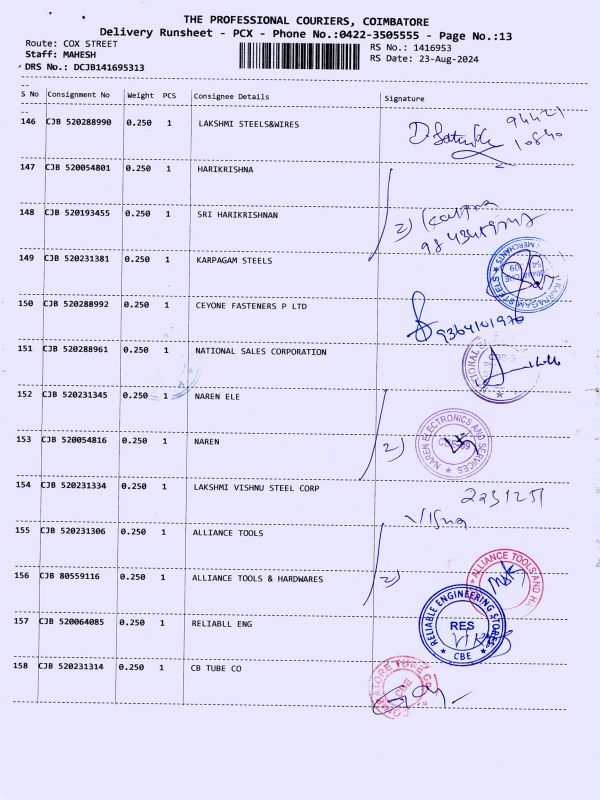 THE PROFESSIONAL COURIERS, COIMBATORE
Delivery Runsheet - PCX - Phone No.:0422-3505555 - Page No.:13
Route: COX STREET
RS No.: 1416953
Staff: MAHESH
RS Date: 23-Aug-2024
DRS No.: DCJB141695313
S No Consignment No Weight PCS Consignee Details Signature
146 CJB 520288990 0.250 1 LAKSHMI STEELS&WIRES
94421
10840
147 CJB 520054801 0.250 1 HARIKRISHNA
148 CJB 520193455 0.250 1 SRI HARIKRISHNAN
2) Kalpana
149 CJB 520231381 0.250 1 KARPAGAM STEELS
KARPAGAM STEELS MERCHANTS
150 CJB 520288992 0.250 1 CEYONE FASTENERS P LTD
9364101970
151 CJB 520288961 0.250 1 NATIONAL SALES CORPORATION
152 CJB 520231345 0.250 1 NAREN ELE
153 CJB 520054816 0.250 1 NAREN
2)
NAREN ELECTRONICS AND SERVICES
154 CJB 520231334 0.250 1 LAKSHMI VISHNU STEEL CORP
2231251
Vishnu
155 CJB 520231306 0.250 1 ALLIANCE TOOLS
156 CJB 80559116 0.250 1 ALLIANCE TOOLS & HARDWARES
2)
ALLIANCE TOOLS AND
157 CJB 520064085 0.250 1 RELIABLL ENG
RELIABLE ENGINEERING STORES
RES
CBE
158 CJB 520231314 0.250 1 CB TUBE CO
TUBE CO
CBE